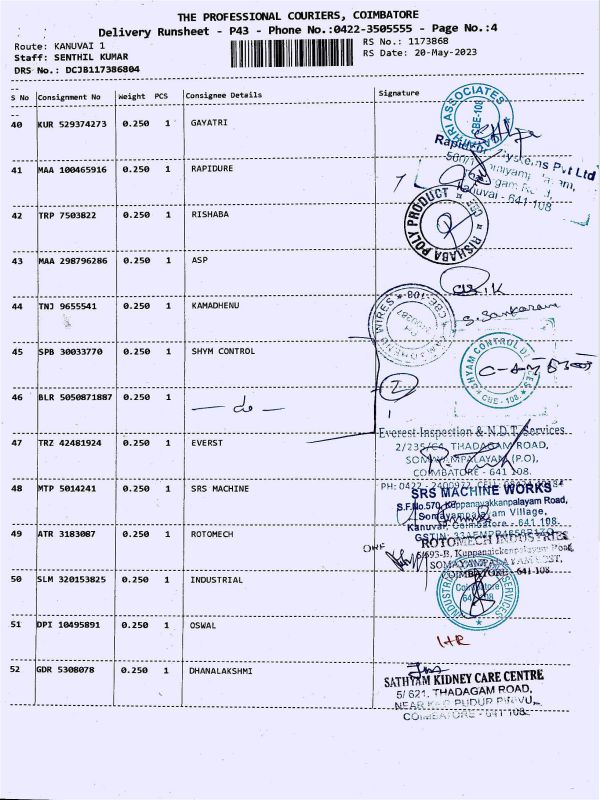 THE PROFESSIONAL COURIERS, COIMBATORE
Delivery Runsheet - P43 - Phone No.:0422-3505555 - Page No.:4
Route: KANUVAI 1
RS No.: 1173868
Staff: SENTHIL KUMAR
RS Date: 20-May-2023
DRS No.: DCJB117386804
S No Consignment No Weight PCS Consignee Details Signature
40 KUR 529374273 0.250 1 GAYATRI
ASSOCIATES
CBE-108
41 MAA 100465916 0.250 1 RAPIDURE
Pvt Ltd
Kanuvai - 641 108
42 TRP 7503822 0.250 1 RISHABA
RISHABA POLY PRODUCT
43 MAA 298796286 0.250 1 ASP
44 TNJ 9655541 0.250 1 KAMADHENU
WIRES CBE-108
S. Sankaran
45 SPB 30033770 0.250 1 SHYM CONTROL
SHYAM CONTROL DEVICES
CBE - 108
46 BLR 5050871887 0.250 1 — do —
2
47 TRZ 42481924 0.250 1 EVERST
Everest Inspection & N.D.T. Services
2/235/C4, THADAGAM ROAD,
SOMAYAMPALAYAM (P.O),
COIMBATORE - 641 108.
48 MTP 5014241 0.250 1 SRS MACHINE
PH: 0422 - 2400972
SRS MACHINE WORKS
S.F.No.570, Kuppanayakkanpalayam Road,
Somayampalayam Village,
Kanuvai, Coimbatore - 641 108.
49 ATR 3183087 0.250 1 ROTOMECH
ROTOMECH INDUSTRIES
6/693-B, Kuppanaickenpalayam Road
SOMAYAMPALAYAM POST,
COIMBATORE - 641 108
50 SLM 320153825 0.250 1 INDUSTRIAL
INDUSTRIAL SERVICES
Coimbatore
51 DPI 10495891 0.250 1 OSWAL
52 GDR 5308078 0.250 1 DHANALAKSHMI
SATHYAM KIDNEY CARE CENTRE
5/ 621, THADAGAM ROAD,
COIMBATORE - 641 108